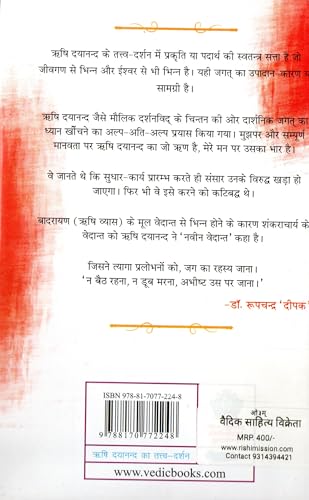 ऋषि दयानन्द के तत्त्व-दर्शन में प्रकृति या पदार्थ की स्वतन्त्र सत्ता है जो
जीवगण से भिन्न और ईश्वर से भी भिन्न है। यही जगत् का उपादान-कारण या
सामग्री है।
ऋषि दयानन्द जैसे मौलिक दर्शनविद् के चिन्तन की ओर दार्शनिक जगत् का
ध्यान खींचने का अल्प-अति-अल्प प्रयास किया गया। मुझपर और सम्पूर्ण
मानवता पर ऋषि दयानन्द का जो ऋण है, मेरे मन पर उसका भार है।
वे जानते थे कि सुधार-कार्य प्रारम्भ करते ही संसार उनके विरुद्ध खड़ा हो
जाएगा। फिर भी वे इसे करने को कटिबद्ध थे।
बादरायण (ऋषि व्यास) के मूल वेदान्त से भिन्न होने के कारण शंकराचार्य के
वेदान्त को ऋषि दयानन्द ने 'नवीन वेदान्त' कहा है।
जिसने त्यागा प्रलोभनों को, जग का रहस्य जाना।
'न बैठ रहना, न डूब मरना, अभीष्ट उस पर जाना।'
-डॉ. रूपचन्द्र 'दीपक'
ISBN 978-81-7077-224-8
9 788170 772248
ऋषि दयानन्द का तत्त्व-दर्शन
www.vedicbooks.com
ओ३म्
वैदिक साहित्य विक्रेता
MRP. 400/-
www.rishimission.com
Contact 9314394421